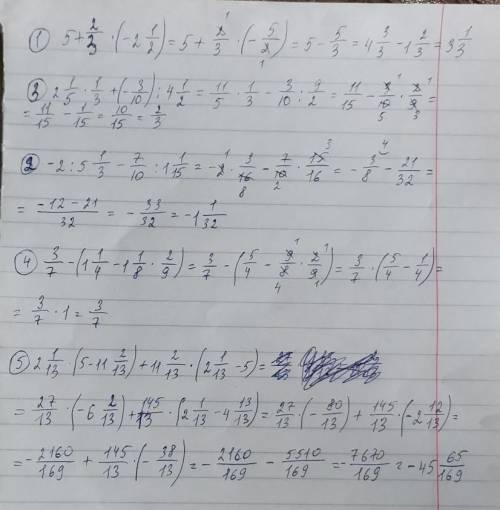 ① 5+2/3·(-2 1/2)=5+2/3·(-5/2)=5-5/3=4 3/3-1 2/3=3 1/3
③ 2 1/5·1/3+(-3/10):4 1/2=11/5·1/3-3/10:9/2=11/15-3/10·2/9=
=11/15-1/15=10/15=2/3
② -2:5 1/3-7/10:1 1/15=-2·3/16-7/10·15/16=-3/8-21/32=
=-12-21/32=-33/32=-1 1/32
④ 3/7-(1 1/4-1 1/8·2/9)=3/7-(5/4-9/8·2/9)=3/7·(5/4-1/4)=
=3/7·1=3/7
⑤ 2 1/13·(5-11 2/13)+11 2/13·(2 1/13-5)=
=27/13·(-6 2/13)+145/13·(2 1/13-4 13/13)=27/13·(-80/13)+145/13·(-2 12/13)=
=-2160/169+145/13·(-38/13)=-2160/169-5510/169=-7670/169=-45 65/169